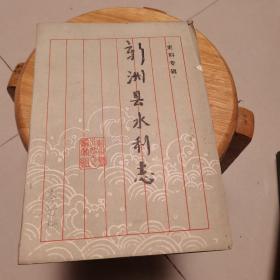 史料专辑
新洲县水利志